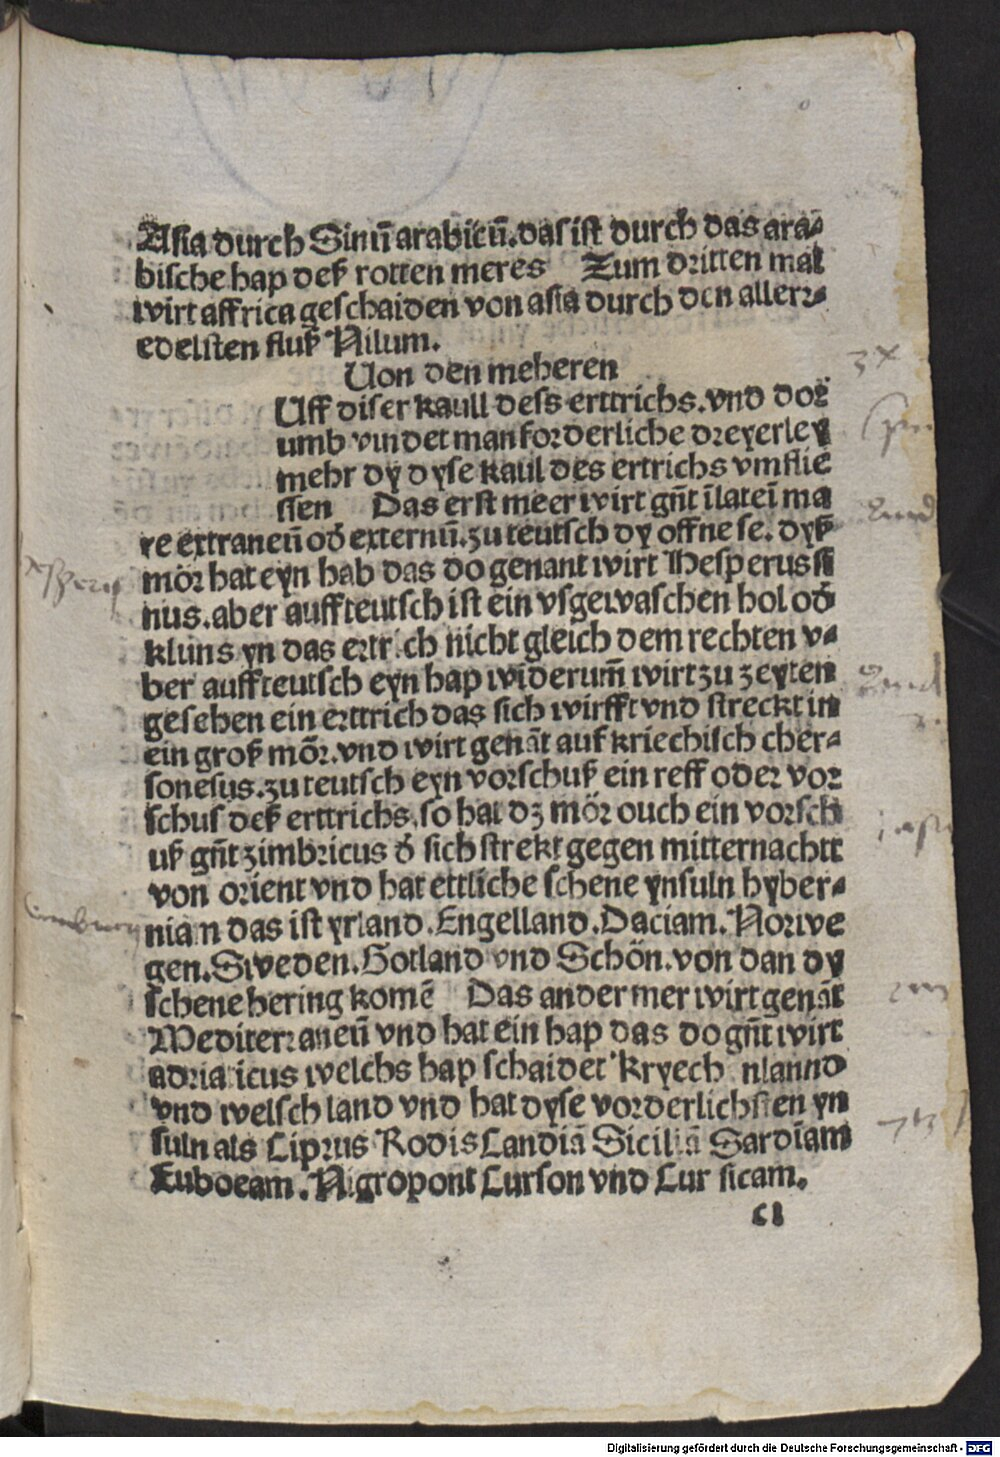 Asia durch Sinū arabicū. das ist durch das ara-
bische hap deß rotten meres Zum dritten mal
wirt affrica geschaiden von asia durch den allerr-
edelsten fluß Nilum.
Von den meheren
Uff diser kaull dess erttrichs. vnd dor
umb vindet man forderliche dreyerley
mehr dy dyse kaul des ertrichs vmflie
ssen Das erst meer wirt gn̄t īlatei᷑ ma
re extraneū od̓ externū. zu teutsch dy offne se. dyß
mör hat eyn hab das do genant wirt Hesperus si
nus. aber auff teutsch ist ein vsgewaschen hol od̓
kluns yn das ertrich nicht gleich dem rechten v-
ber auff teutsch eyn hap widerum̄ wirt zu zeyten
gesehen ein erttrich das sich wirfft vnd streckt in
ein groß mör. vnd wirt genāt auf kriechisch cher-
sonesus. zu teutsch eyn vorschuß ein reff oder vor
schus deß erttrichs. so hat dz mör ouch ein vorsch
uß gn̄t zimbricus d̓ sich strekt gegen mitternachtt
von orient vnd hat ettliche schene ynsuln hyber-
nian das ist yrland. Engelland. Daciam. Norwe
gen. Sweden. Gotland vnd Schön. von dan dy
schene hering komē Das ander mer wirt genāt
Mediterraneū vnd hat ein hap das do gn̄t wirt
adriaticus welchs hap schaidet Kryech nlannd
vnd welsch land vnd hat dyse vorderlichsten yn
suln als Ciprus Rodis Candiā Siciliā Sardīam
Euboeam. Nigropont Curson vnd Cur sicam.
c1
Digitalisierung gefördert durch die Deutsche Forschungsgemeinschaft - DFG